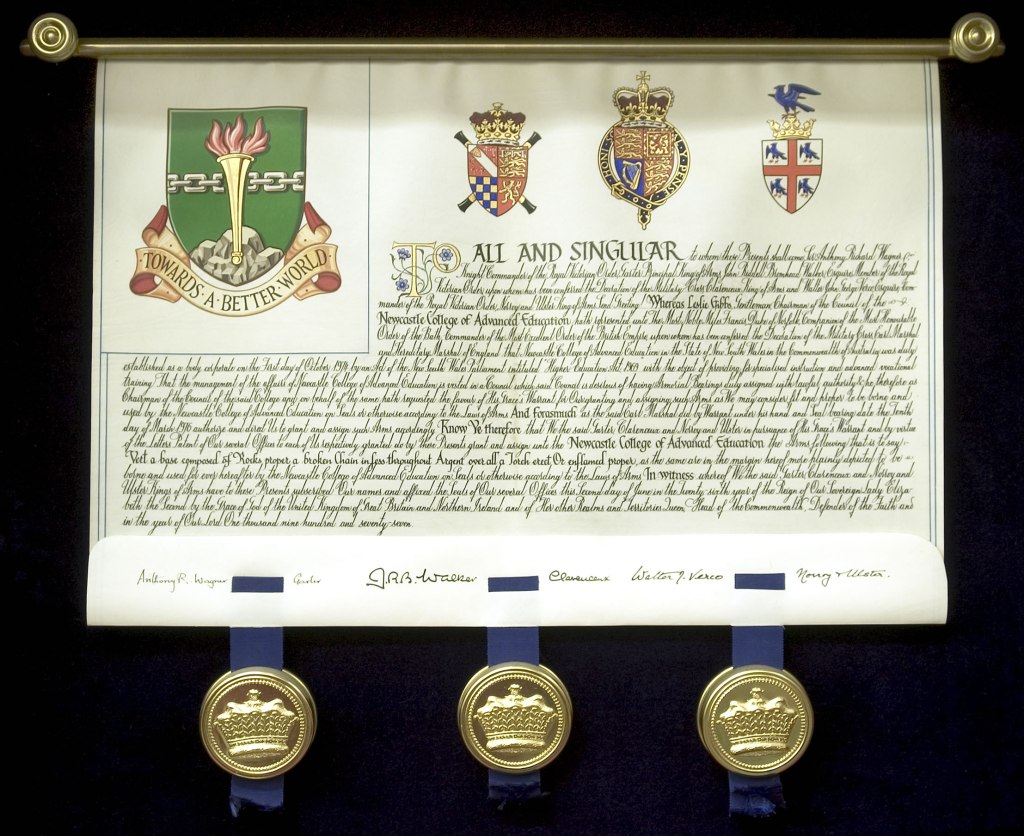 TOWARDS · A · BETTER · WORLD
HONI SOIT
PENSE
TO ALL AND SINGULAR to whom these Presents shall come Sir Anthony Richard Wagner
Knight Commander of the Royal Victorian Order, Garter Principal King of Arms, John Riddell Bromhead Walker, Esquire, Member of the Royal
Victorian Order upon whom has been conferred the Decoration of the Military Cross, Clarenceux King of Arms and Walter John George Verco, Esquire, Com-
mander of the Royal Victorian Order, Norroy and Ulster King of Arms, Send Greeting Whereas Leslie Gibbs, Gentleman, Chairman of the Council of the
Newcastle College of Advanced Education hath represented unto The Most Noble Miles Francis, Duke of Norfolk, Companion of the Most Honourable
Order of the Bath, Commander of the Most Excellent Order of the British Empire, upon whom has been conferred the Decoration of the Military Cross, Earl Marshal
and Hereditary Marshal of England that Newcastle College of Advanced Education in the State of New South Wales in the Commonwealth of Australia was duly
established as a body corporate on the First day of October 1974 by an Act of the New South Wales Parliament intituled Higher Education Act 1969 with the object of providing for specialised instruction and advanced vocational
training That the management of the affairs of Newcastle College of Advanced Education is vested in a Council which said Council is desirous of having Armorial Bearings duly assigned with lawful authority & he therefore as
Chairman of the Council of the said College and on behalf of the same hath requested the favour of His Grace's Warrant for Our granting and assigning such Arms as We may consider fit and proper to be borne and
used by the Newcastle College of Advanced Education on Seals or otherwise according to the Laws of Arms And forasmuch as the said Earl Marshal did by Warrant under his hand and Seal bearing date the Tenth
day of March 1976 authorize and direct Us to grant and assign such Arms accordingly Know Ye therefore that We the said Garter, Clarenceux and Norroy and Ulster in pursuance of His Grace's Warrant and by virtue
of the Letters Patent of Our several Offices to each of Us respectively granted do by these Presents grant and assign unto the Newcastle College of Advanced Education the Arms following that is to say:-
Vert a base composed of Rocks proper a broken Chain in fess throughout Argent over all a Torch erect Or enflamed proper, as the same are in the margin hereof more plainly depicted to be
borne and used for ever hereafter by the Newcastle College of Advanced Education on Seals or otherwise according to the Laws of Arms In witness whereof We the said Garter, Clarenceux and Norroy and
Ulster Kings of Arms have to these Presents subscribed Our names and affixed the Seals of Our several Offices this Second day of June in the Twenty sixth year of the Reign of Our Sovereign Lady Eliza-
beth the Second by the Grace of God of the United Kingdom of Great Britain and Northern Ireland and of Her other Realms and Territories Queen, Head of the Commonwealth, Defender of the Faith and
in the year of Our Lord One thousand nine hundred and seventy-seven.
Anthony R. Wagner Garter J.R.B. Walker Clarenceux Walter J. Verco Norroy & Ulster.